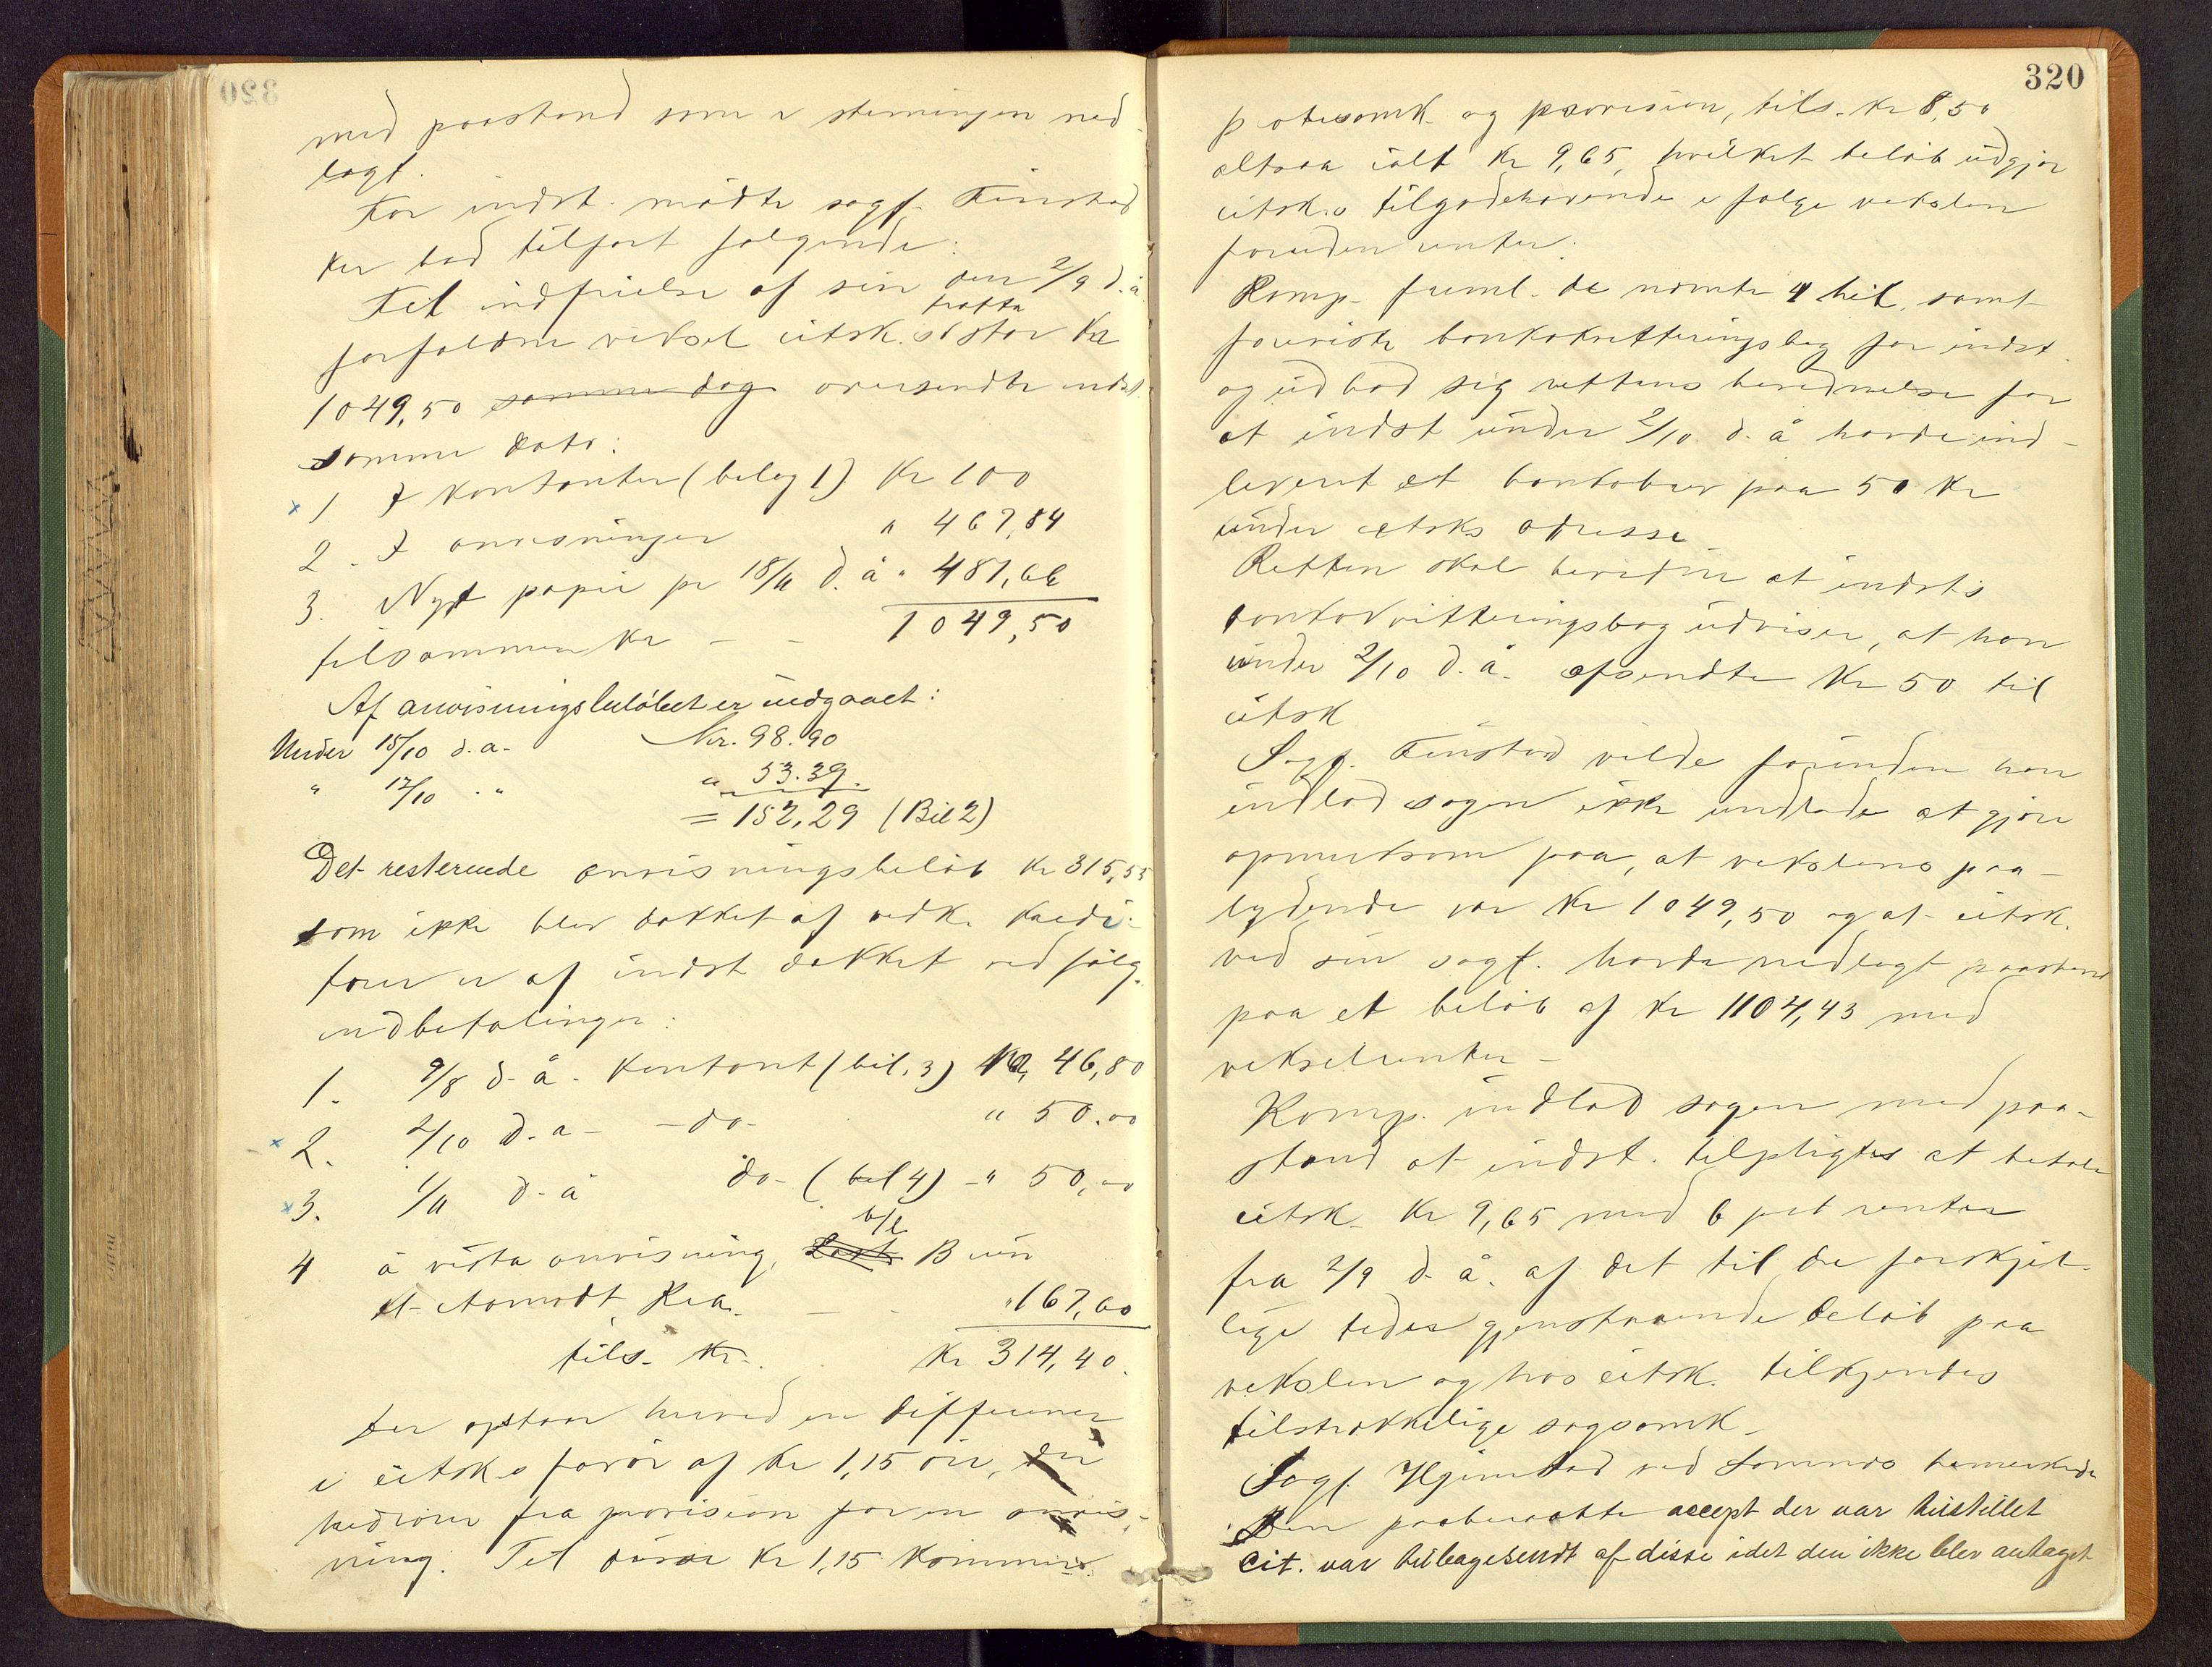 med paastand som i stevningen ned-
lagt.
For indst. mødte sagf. Finstad
der bad tilført følgende:
Til indfrielse af sin den 2/9 d. å
forfaldne veksel citsk. tratta stor Kr
1049,50 samme dag oversendte indst.
samme dato:
x 1. I kontanter (bilag 1) Kr 100
2. I anvisninger " 467,84
3. Nyt papir pr 18/11 d. å " 481,66
tilsammen Kr - - 1049,50
Af anvisningsbeløbet er indgaaet:
Under 15/10 d. a. Kr. 98.90
" 17/10 " " 53.39.
= 152,29 (Bil 2)
Det resterende anvisningsbeløb Kr 315,55
som ikke blev dækket af vedk. kredi-
torer er af indst dækket ved følg.
indbetalinger:
1. 9/8 d. å. kontant (bil. 3) Kr, 46,80
x 2. 2/10 d. a - -do- " 50.00
x 3. 1/11 d. å do- (bil 4) - " 50,00
4 à vista anvisning, B un
Kra. - - " 167,60
tils. Kr. Kr. 314,40.
Der opstaar herved en differense
i citsk.s favør af Kr 1,15 øre, der
hidrører fra provision for en anvis-
ning. Til disse Kr 1,15 kommer
320
protesomk. og provision, tils. Kr 8,50
altsaa ialt Kr 9,65, hvilket beløb udgjør
citsk.s tilgodehavende i følge vekslen
foruden renter.
Komp. freml. de nævnte 4 bil. samt
foreviste bankokvitteringsbog for indst.
og udbad sig rettens bevidnelse for
at indst under 2/10. d. å havde ind-
leveret et bankobrev paa 50 Kr
under citsks adresse
Retten skal bevidne at indsts
bankokvitteringsbog udviser, at han
under 2/10 d. å. afsendte Kr 50 til
citsk
Sagf. Finstad vilde forinden han
indlod sagen ikke undlade at gjøre
opmerksom paa, at vekslens paa-
lydende var Kr 1049,50 og at citsk.
ved sin sagf. havde nedlagt paastand
paa et beløb af Kr 1104,43 med
vekselrenter -
Komp. indlod sagen med paa-
stand at indst. tilpligtes at betale
citsk. Kr 9,65 med 6 pct renter
fra 2/9 d. å. af det til de forskjel-
lige tider gjenstaaende beløb paa
vekslen og hos citsk. tilkjendes
tilstrækkelige sagsomk.
Sagf. Hjemstad ved bemerkede
Den paaberaabte accept der var tilstillet
Cit. var tilbagesendt af disse idet den ikke blev antaget